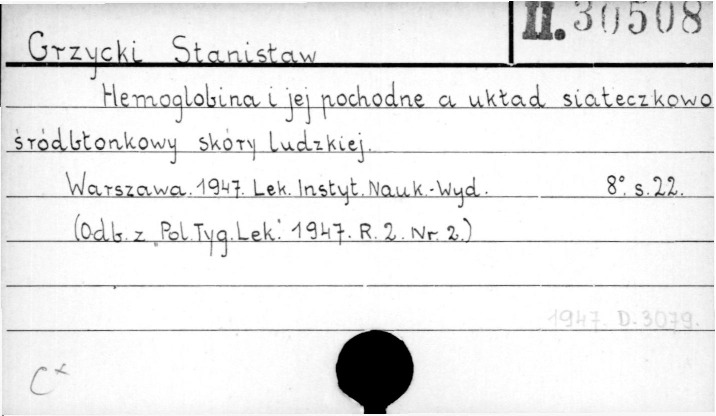 II. 30508
Grzycki Stanisław
Hemoglobina i jej pochodne a układ siateczkowo
śródbłonkowy skóry ludzkiej.
Warszawa. 1947. Lek. Instyt. Nauk.-Wyd. 8°. s. 22.
(Odb. z "Pol. Tyg. Lek." 1947. R. 2. Nr. 2.)
1947. D. 3079.
C x